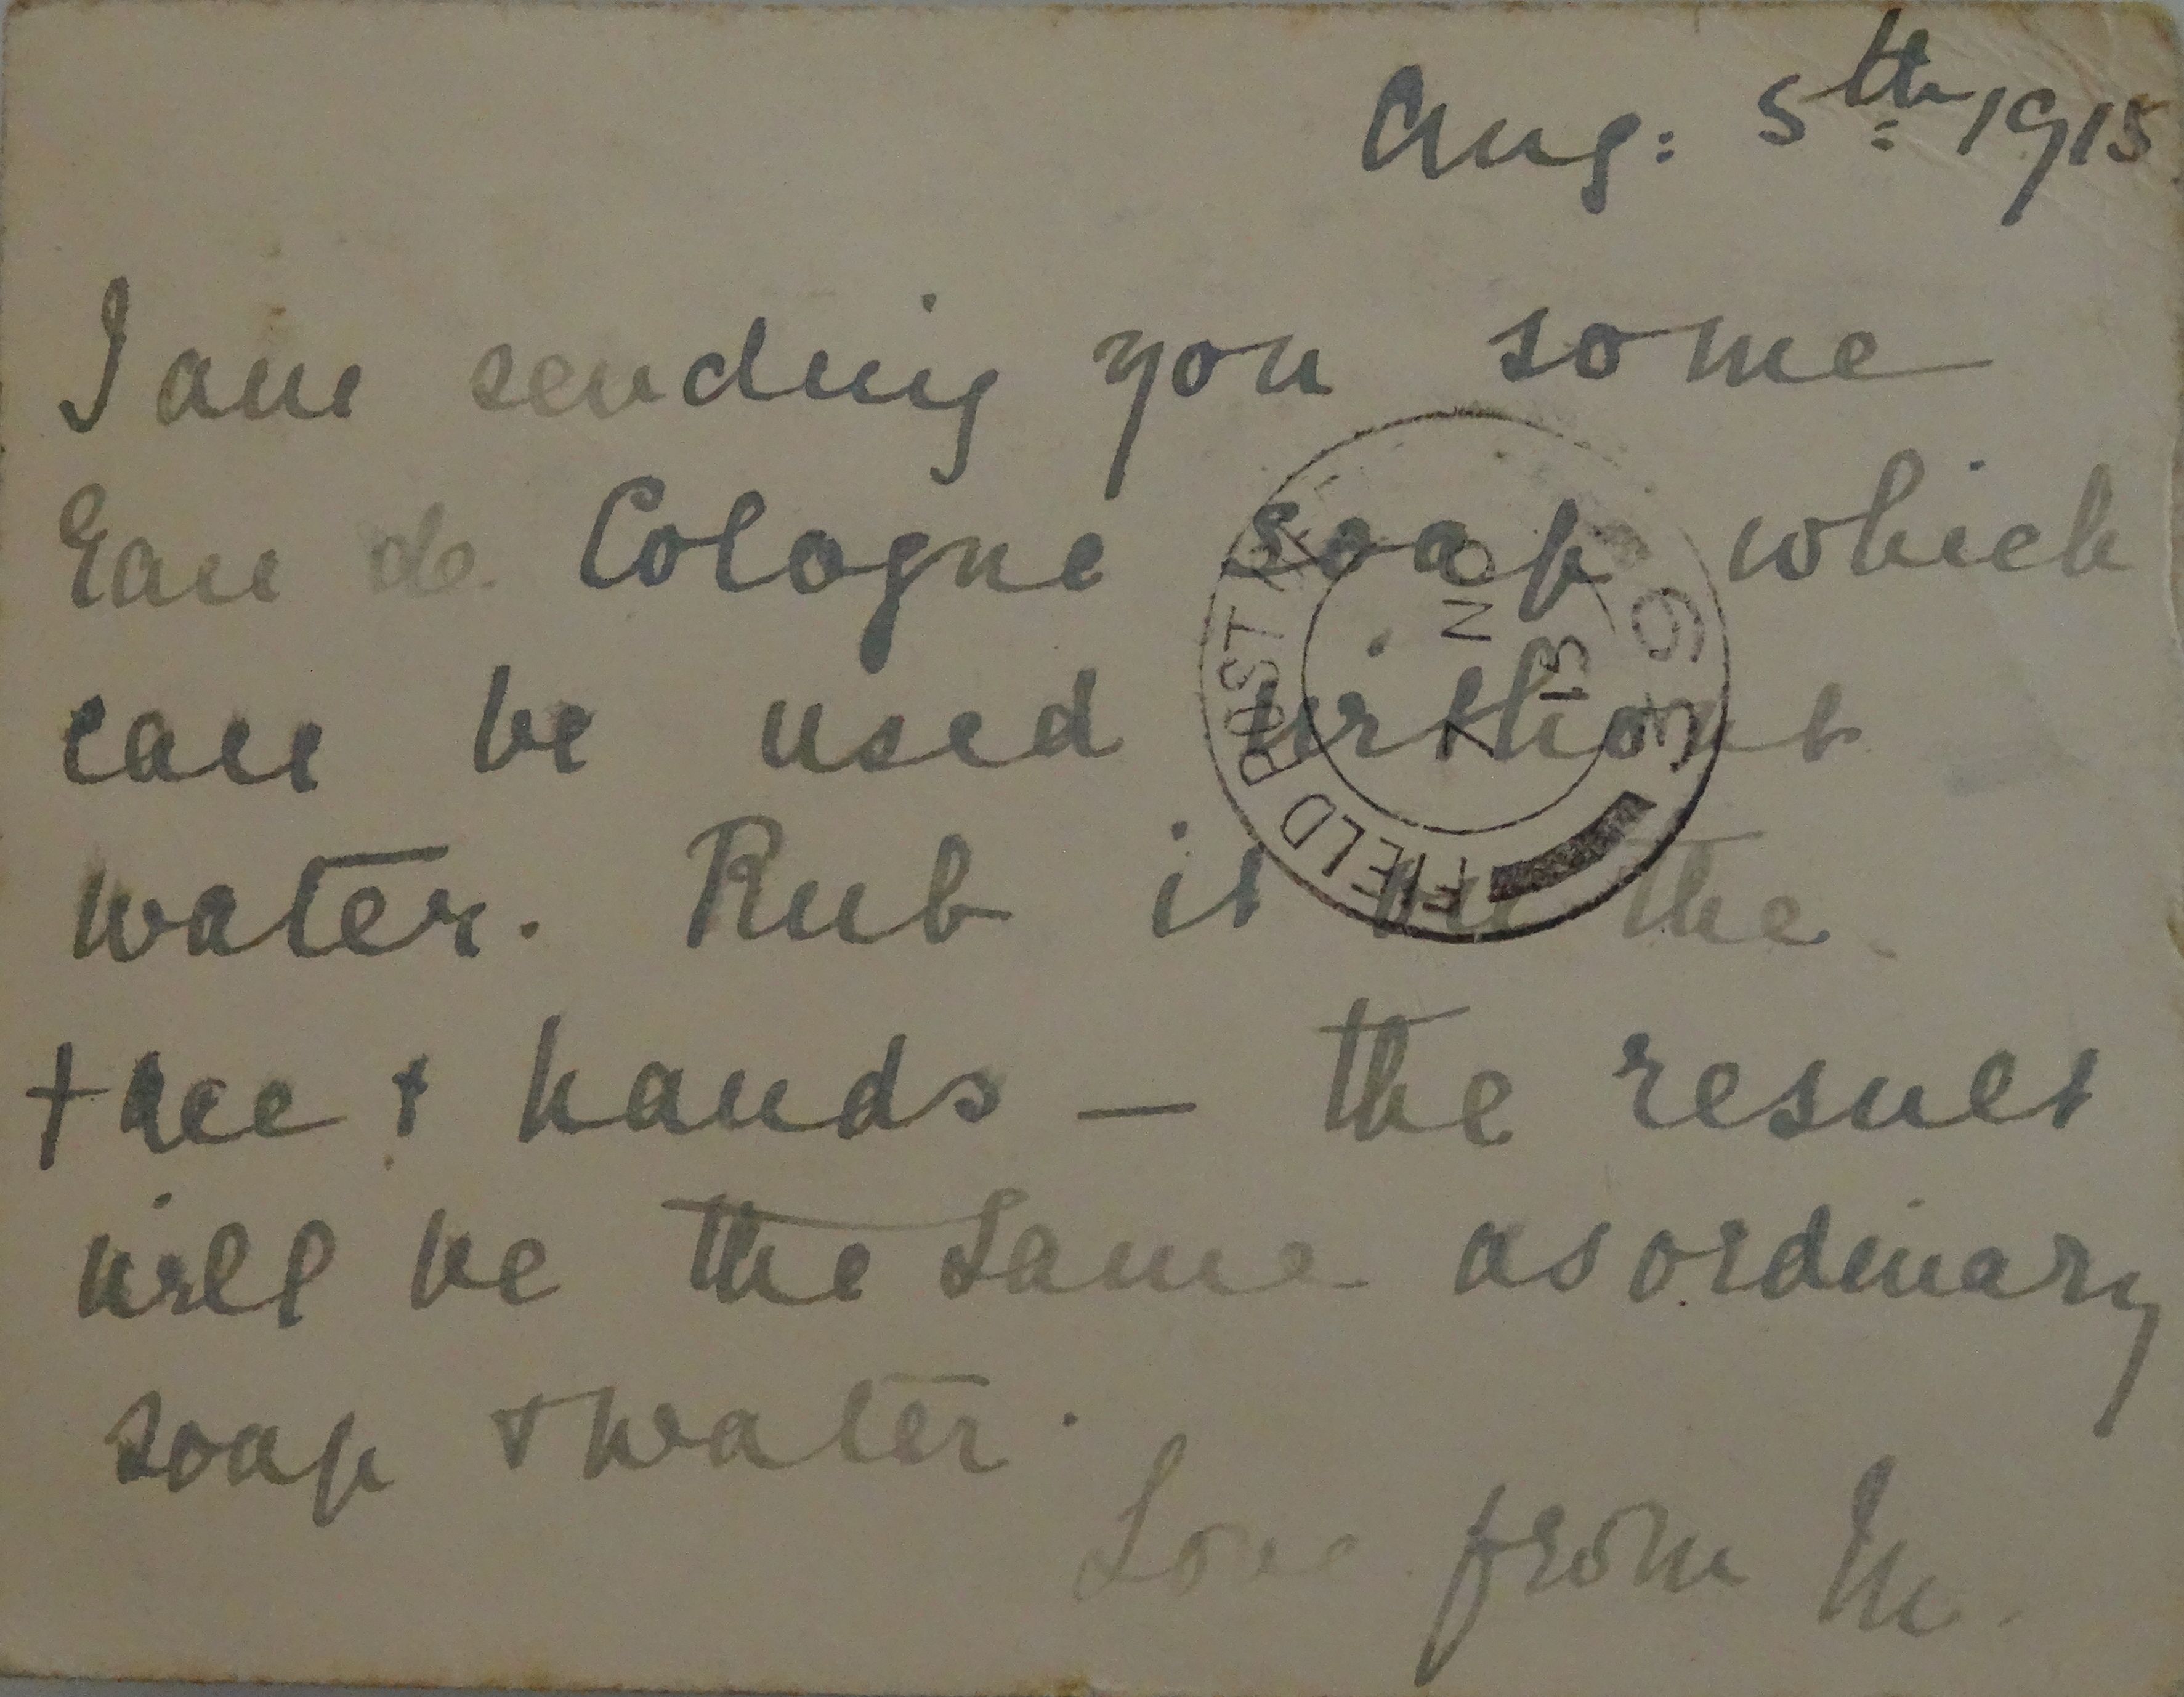 Aug: 5th 1915
I am sending you some
Eau de Cologne soap which
can be used without
water. Rub it on the
face & hands — the result
will be the same as ordinary
soap & water.
Love from M.
FIELD POST
NO
13